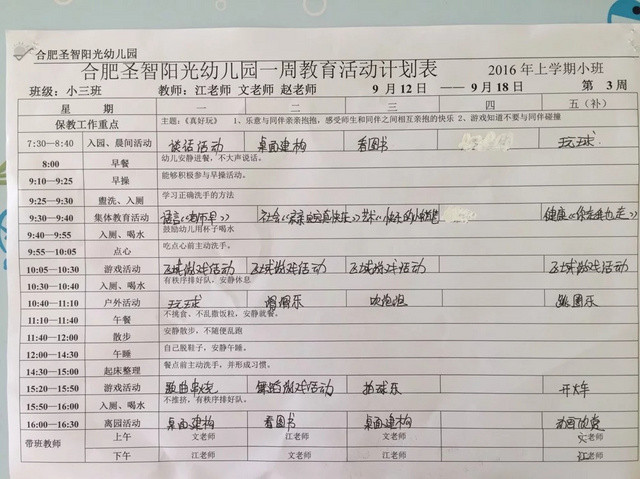 合肥圣智阳光幼儿园
合肥圣智阳光幼儿园一周教育活动计划表 2016年上学期小班
班级：小三班 教师：江老师 文老师 赵老师 9月12日 ——9月18日 第 3 周
星 期 一 二 三 四 五（补）
保教工作重点 主题：《真好玩》 1、乐意与同伴亲亲抱抱，感受师生和同伴之间相互亲抱的快乐 2、游戏知道不要与同伴碰撞
7:30—8:40 入园、晨间活动 谈话活动 桌面建构 看图书 玩球
8:00 早餐 幼儿安静进餐，不大声说话。
9:10—9:25 早操 能够积极参与早操活动。
9:25—9:30 盥洗、入厕 学习正确洗手的方法
9:30—9:40 集体教育活动 语言 社会 健康《你走我也走》
9:40—9:55 入厕、喝水 鼓励幼儿用杯子喝水
9:55—10:05 点心 吃点心前主动洗手。
10:05—10:30 游戏活动 区域游戏活动 区域游戏活动 区域游戏活动 区域游戏活动
10:30—10:40 入厕、喝水 有秩序排好队，安静休息
10:40—11:10 户外活动 玩球 圈圈乐 吹泡泡 跳圈乐
11:10—11:40 午餐 不挑食、不乱撒饭粒，安静就餐。
11:40—12:00 散步 安静散步，不随便乱跑
12:00—14:30 午睡 自己脱鞋子，安静午睡。
14:30—15:00 起床整理 餐点前主动洗手，并形成习惯。
15:20—15:50 游戏活动 歌曲串烧 舞蹈游戏活动 拍球乐 开火车
15:50—16:00 入厕、喝水 不推挤，有秩序排好队。
16:00—16:30 离园活动 桌面建构 看图书 桌面建构 动画欣赏
带班教师 上午 文老师 江老师 文老师 文老师
下午 江老师 文老师 江老师 江老师